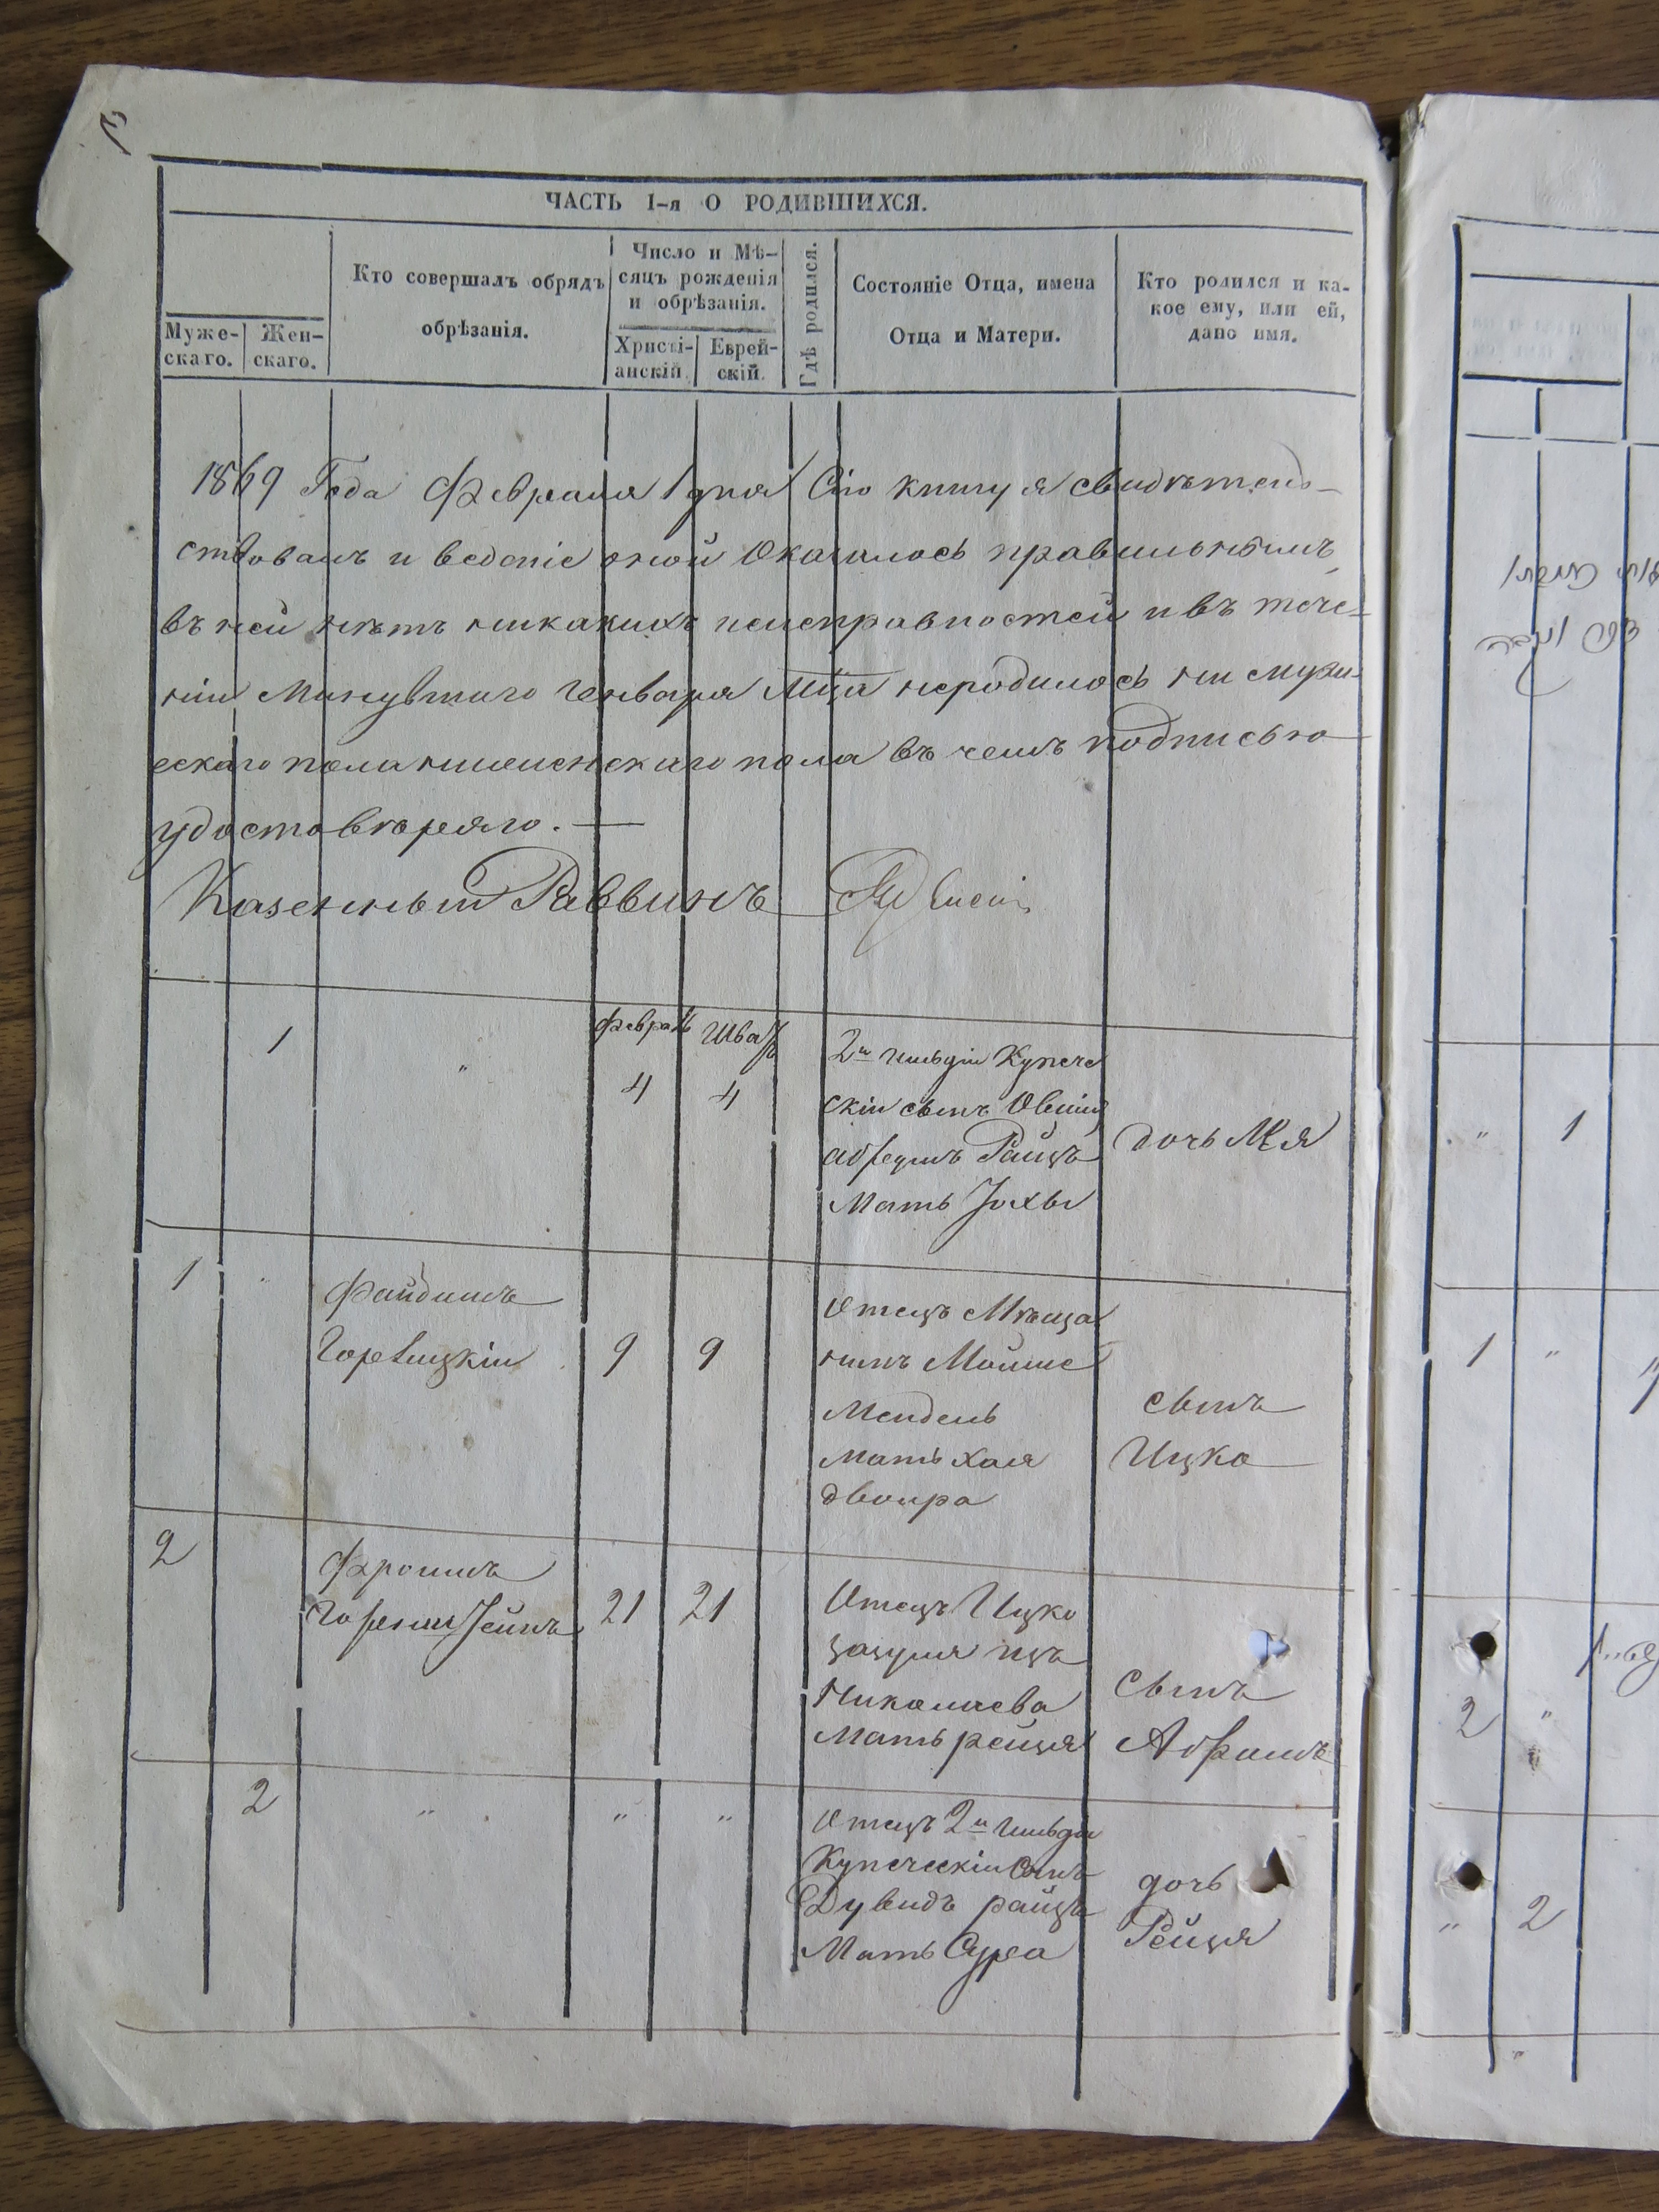 ЧАСТЬ 1-я О РОДИВШИХСЯ.
Муже-
скаго.
Жен-
скаго.
Кто совершалъ обрядъ
обрѣзанія.
Число и Мѣ-
сяцъ рожденія
и обрѣзанія.
Христі-
анскій.
Еврей-
скій.
Гдѣ родился.
Состояніе Отца, имена
Отца и Матери.
Кто родился и ка-
кое ему, или ей,
дано имя.
1869 Года Февраля 1 дня Сію книгу я свидѣтель-
ствовалъ и веденіе оной Оказалось правильнымъ
въ ней нѣтъ никакихъ неисправностей и въ тече-
ніи Минувшаго Генваря М-ца неродилось ни мужи-
ескаго пола ниженскаго пола въ чемъ подписью
удостовѣряю. —
Казенный Раввинъ
1
"
Февраль
4
Шватъ
4
2й гильдіи Купече
скій сынъ Овшія
абрумъ Райцъ
Мать
дочь
1
"
Файдишъ
Горевицкій
9
9
Отецъ Мѣща
нинъ Мойше
Мендель
Мать хая
двойра
сынъ
Ицко
2
Фроимъ
21
21
Отецъ Ицко
изъ
Николаева
Мать рейзя
Сынъ
Абрамъ
2
"
"
"
Отецъ 2й гильди
Купеческій Сынъ
Дувидъ райцъ
Мать Сура
дочь
Рейзя
"
1
1
"
2
"
"
2